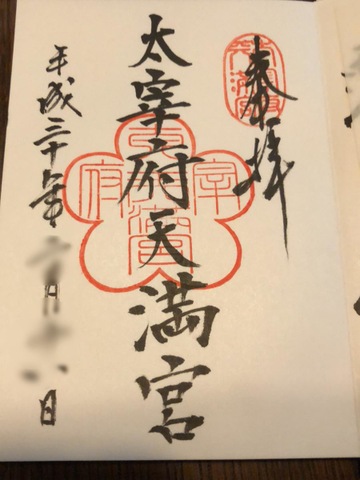 奉拝
太宰府天満宮
平成三十年 月 日